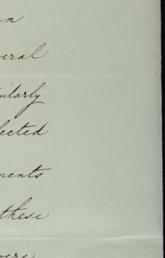 n
eral
ilarly
lected
ments
these
were